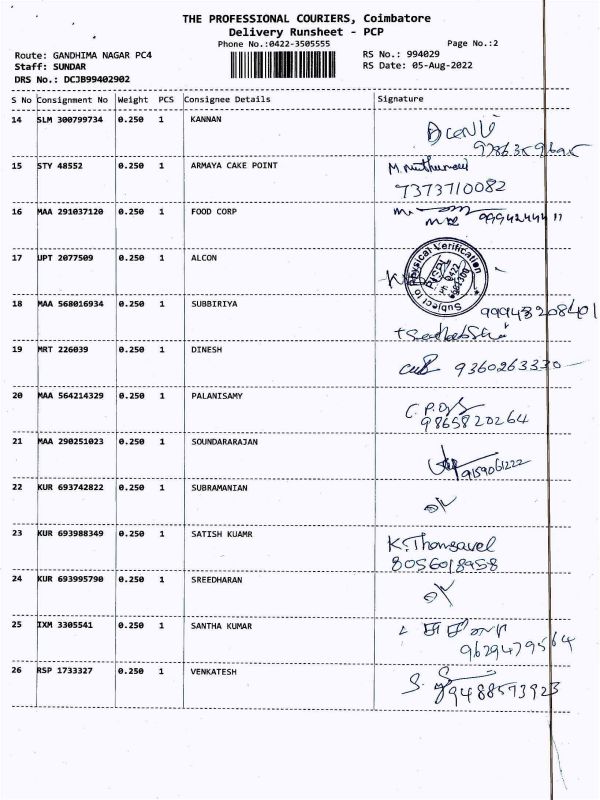 THE PROFESSIONAL COURIERS, Coimbatore
Delivery Runsheet - PCP
Phone No.:0422-3505555
Page No.:2
Route: GANDHIMA NAGAR PC4
RS No.: 994029
Staff: SUNDAR
RS Date: 05-Aug-2022
DRS No.: DCJB99402902
S No Consignment No Weight PCS Consignee Details Signature
14 SLM 300799734 0.250 1 KANNAN
15 STY 48552 0.250 1 ARMAYA CAKE POINT
7373710082
16 MAA 291037120 0.250 1 FOOD CORP
17 UPT 2077509 0.250 1 ALCON
Subject to Physical Verification
18 MAA 568016934 0.250 1 SUBBIRIYA
999483208401
19 MRT 226039 0.250 1 DINESH
9360263330
20 MAA 564214329 0.250 1 PALANISAMY
9865820264
21 MAA 290251023 0.250 1 SOUNDARARAJAN
9159061222
22 KUR 693742822 0.250 1 SUBRAMANIAN
23 KUR 693988349 0.250 1 SATISH KUAMR
K.Thangavel
8056018958
24 KUR 693995790 0.250 1 SREEDHARAN
25 IXM 3305541 0.250 1 SANTHA KUMAR
9629479564
26 RSP 1733327 0.250 1 VENKATESH
9488573923